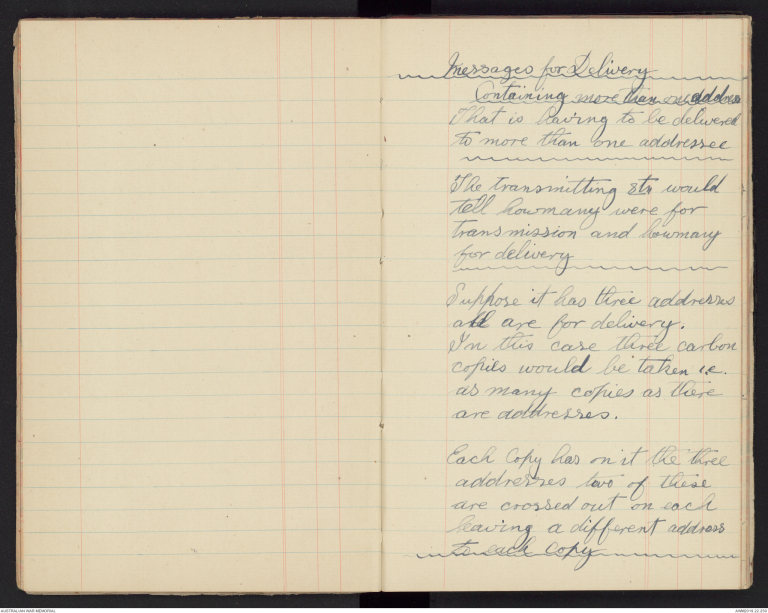 Messages for Delivery
Containing more than one address
That is having to be delivered
to more than one addressee
The transmitting stn would
tell howmany were for
transmission and howmany
for delivery
Suppose it has three addresses
all are for delivery.
In this case three carbon
copies would be taken i.e.
as many copies as there
are addresses.
Each Copy has on it the three
addresses two of these
are crossed out on each
leaving a different address
to each copy
AUSTRALIAN WAR MEMORIAL